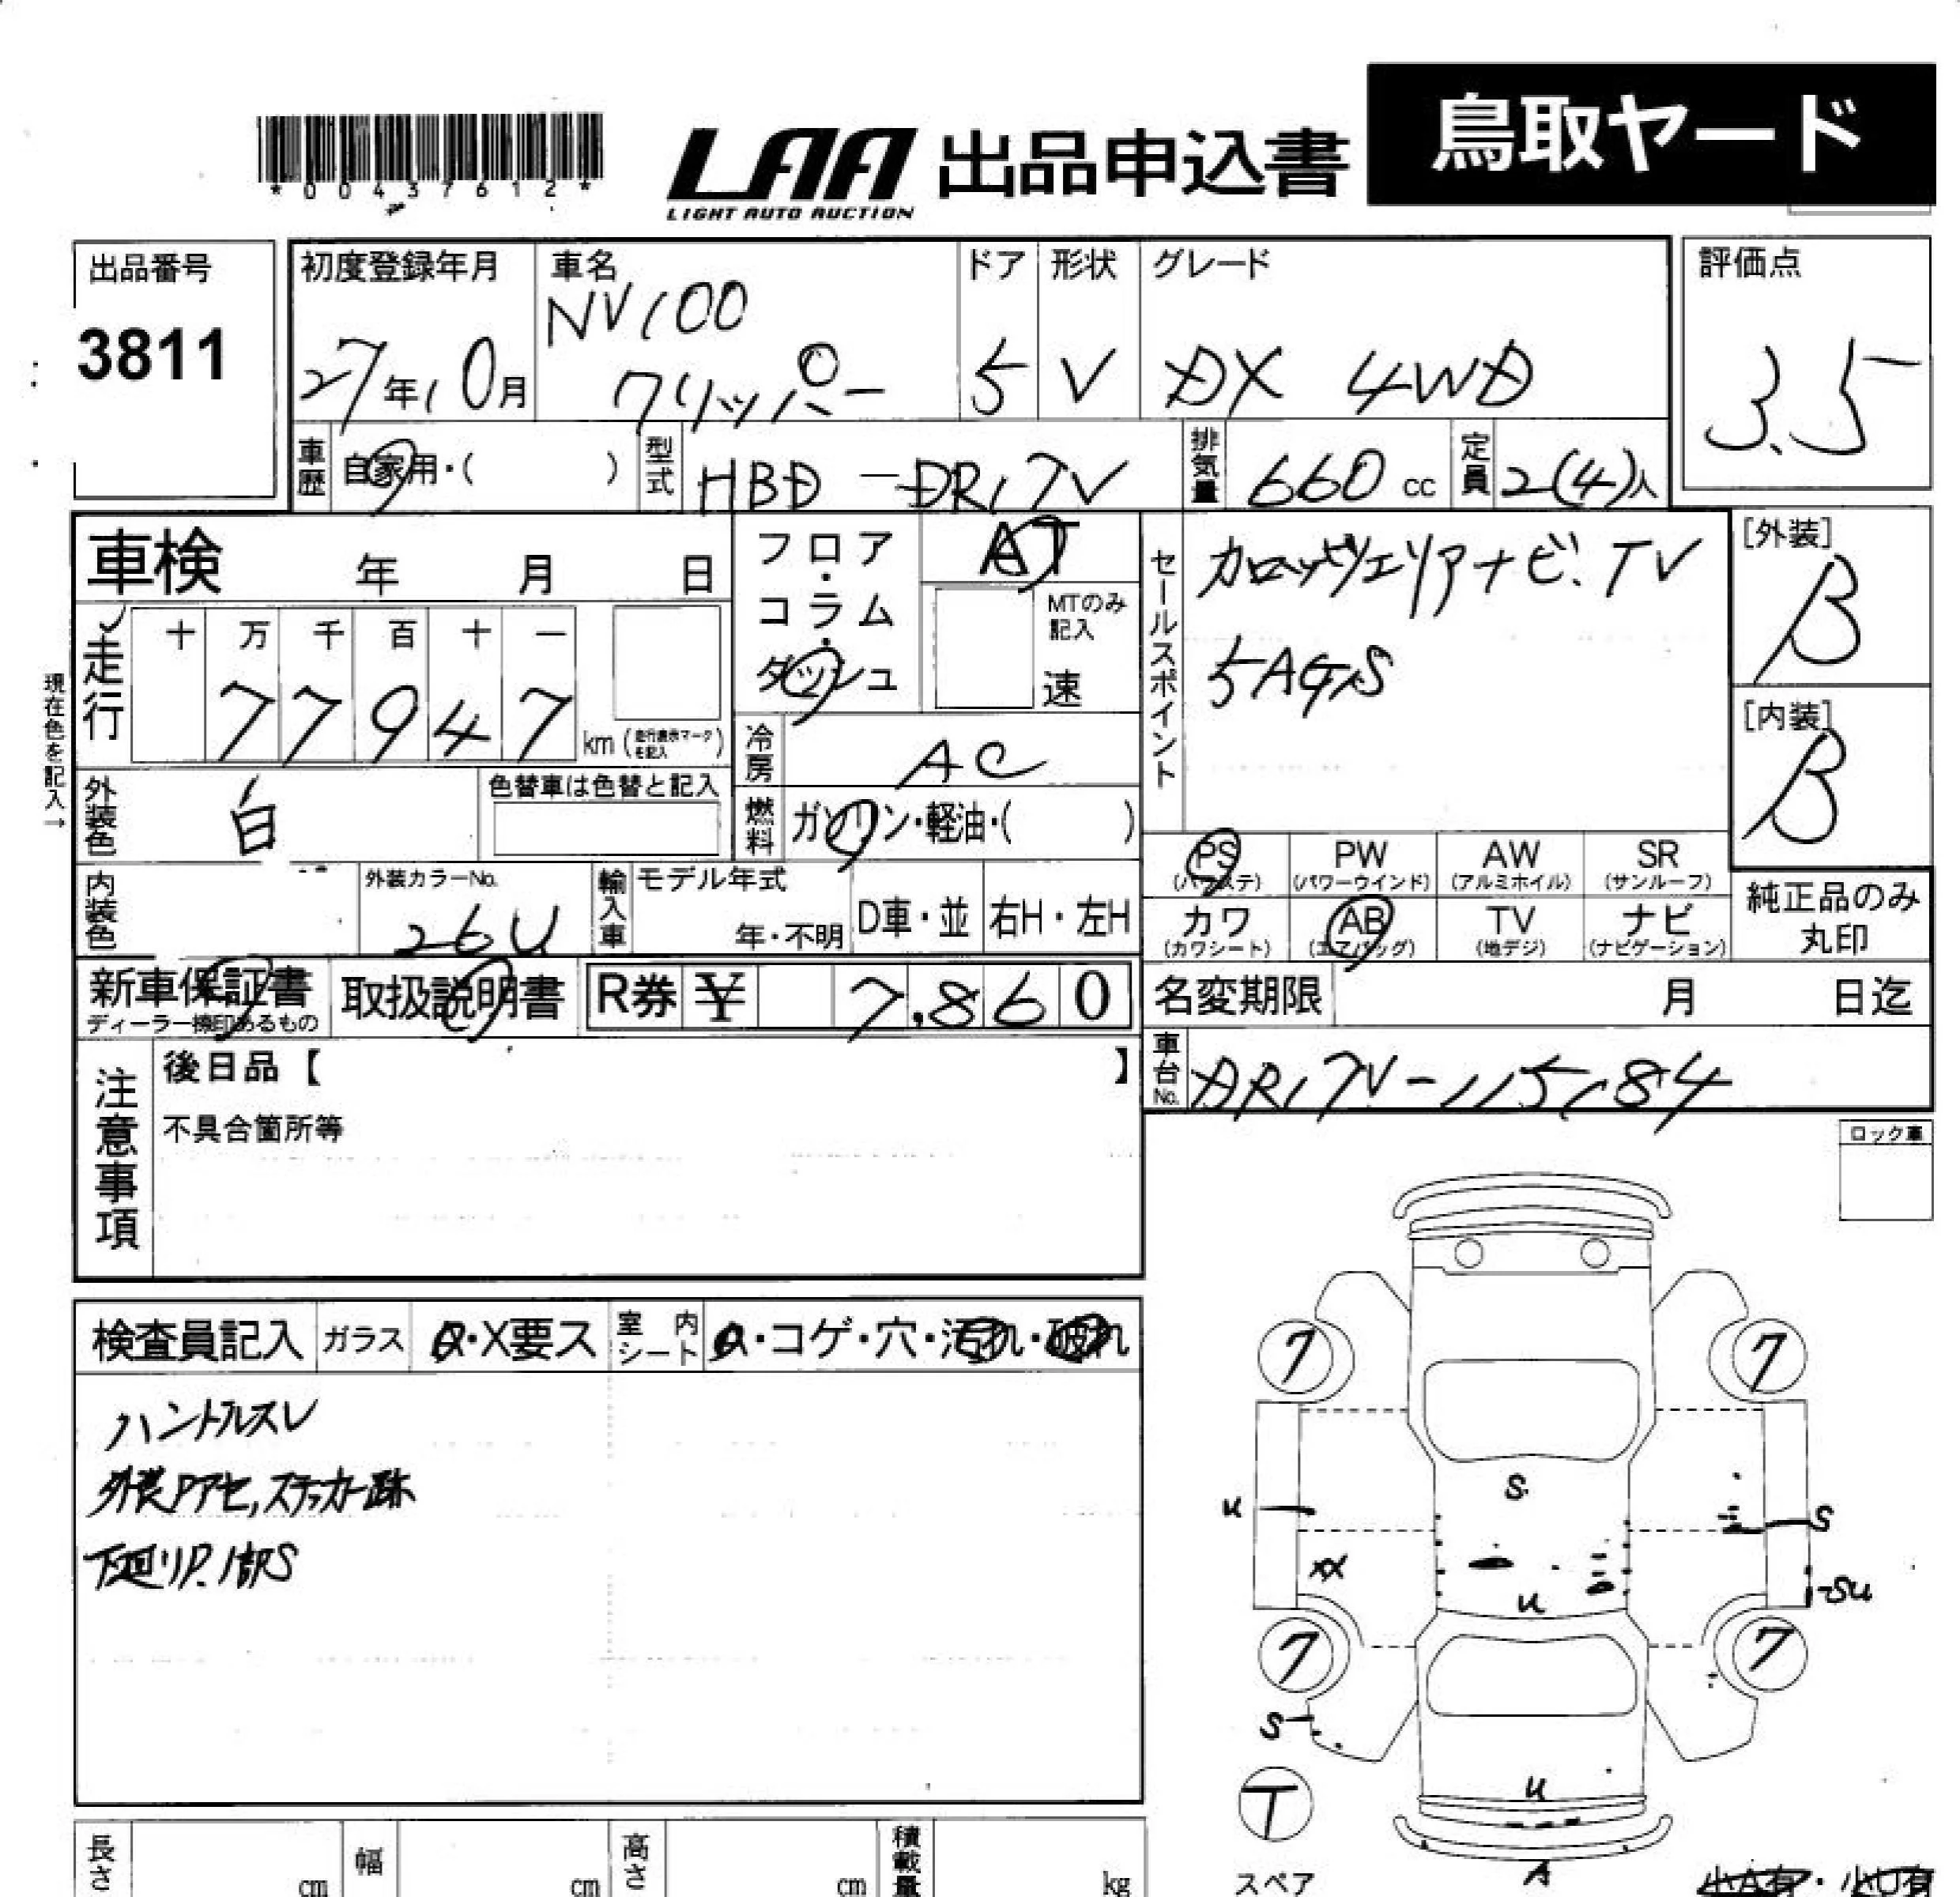 *00437612*
LAA 出品申込書 鳥取ヤード
LIGHT AUTO AUCTION
出品番号 3811
初度登録年月 27年10月
車名 NV100 クリッパー
ドア 5
形状 V
グレード DX 4WD
評価点 3.5
車歴 自家用・( )
型式 HBD-DR17V
排気量 660 cc
定員 2(4)人
車検 年 月 日
フロア・コラム・ダッシュ
AT
MTのみ記入 速
セールスポイント
カロッツェリアナビ.TV
5AGS
[外装] B
[内装] B
現在色を記入→
走行 十 万 千 百 十 一
77947 km (走行表示マークを記入)
冷房 AC
外装色 白
色替車は色替と記入
燃料 ガソリン・軽油・( )
PS (パワステ)
PW (パワーウインド)
AW (アルミホイル)
SR (サンルーフ)
カワ (カワシート)
AB (エアバッグ)
TV (地デジ)
ナビ (ナビゲーション)
純正品のみ丸印
内装色
外装カラーNo. 26U
輸入車 モデル年式 年・不明
D車・並 右H・左H
新車保証書 ディーラー捺印あるもの
取扱説明書
R券 ¥ 7,860
名変期限 月 日迄
車台No. DR17V-115184
注意事項
後日品【 】
不具合箇所等
ロック車
検査員記入 ガラス A・X要ス 室内シート A・コゲ・穴・汚れ・破れ
ハンドルスレ
外装Pアセ,ステッカー跡
下廻りP.1部S
7
7
S
U
S
XX
U
SU
7
7
S
U
T
スペア
A
小A有・小U有
長さ cm
幅 cm
高さ cm
積載量 kg